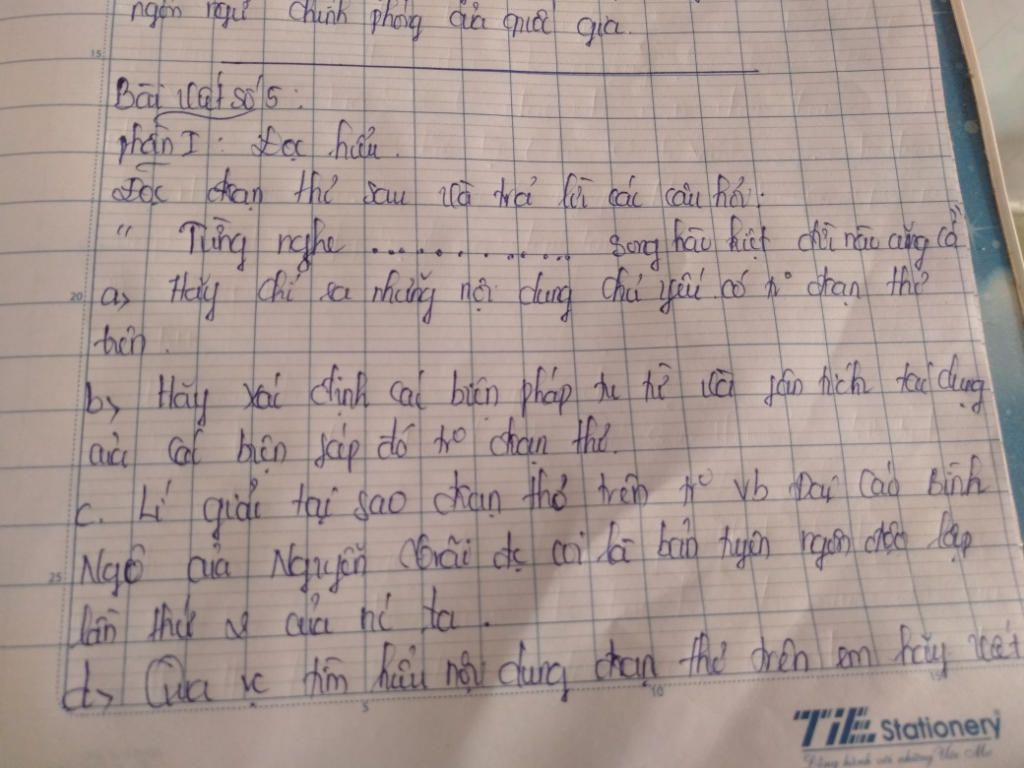 ngôn ngữ chính phòng của quốc gia.
15
Bài viết số 5:
phần I: Đọc hiểu.
Đọc đoạn thơ sau và trả lời các câu hỏi:
" Từng nghe .............. Song hào kiệt đời nào cũng có
20 a, Hãy chỉ ra những nội dung chủ yếu có tr° đoạn thơ
trên.
b, Hãy xác định các biện pháp tu từ và phân tích tác dụng
của các biện pháp đó tr° đoạn thơ.
c. Lí giải tại sao đoạn thơ trên tr° vb Đại Cáo Bình
25 Ngô của Nguyễn Trãi đc coi là bản tuyên ngôn độc lập
lần thứ 2 của nc ta.
d, Qua vc tìm hiểu nội dung đoạn thơ trên em hãy viết
5 10 15
TiE Stationery
Đồng hành với những Ước Mơ